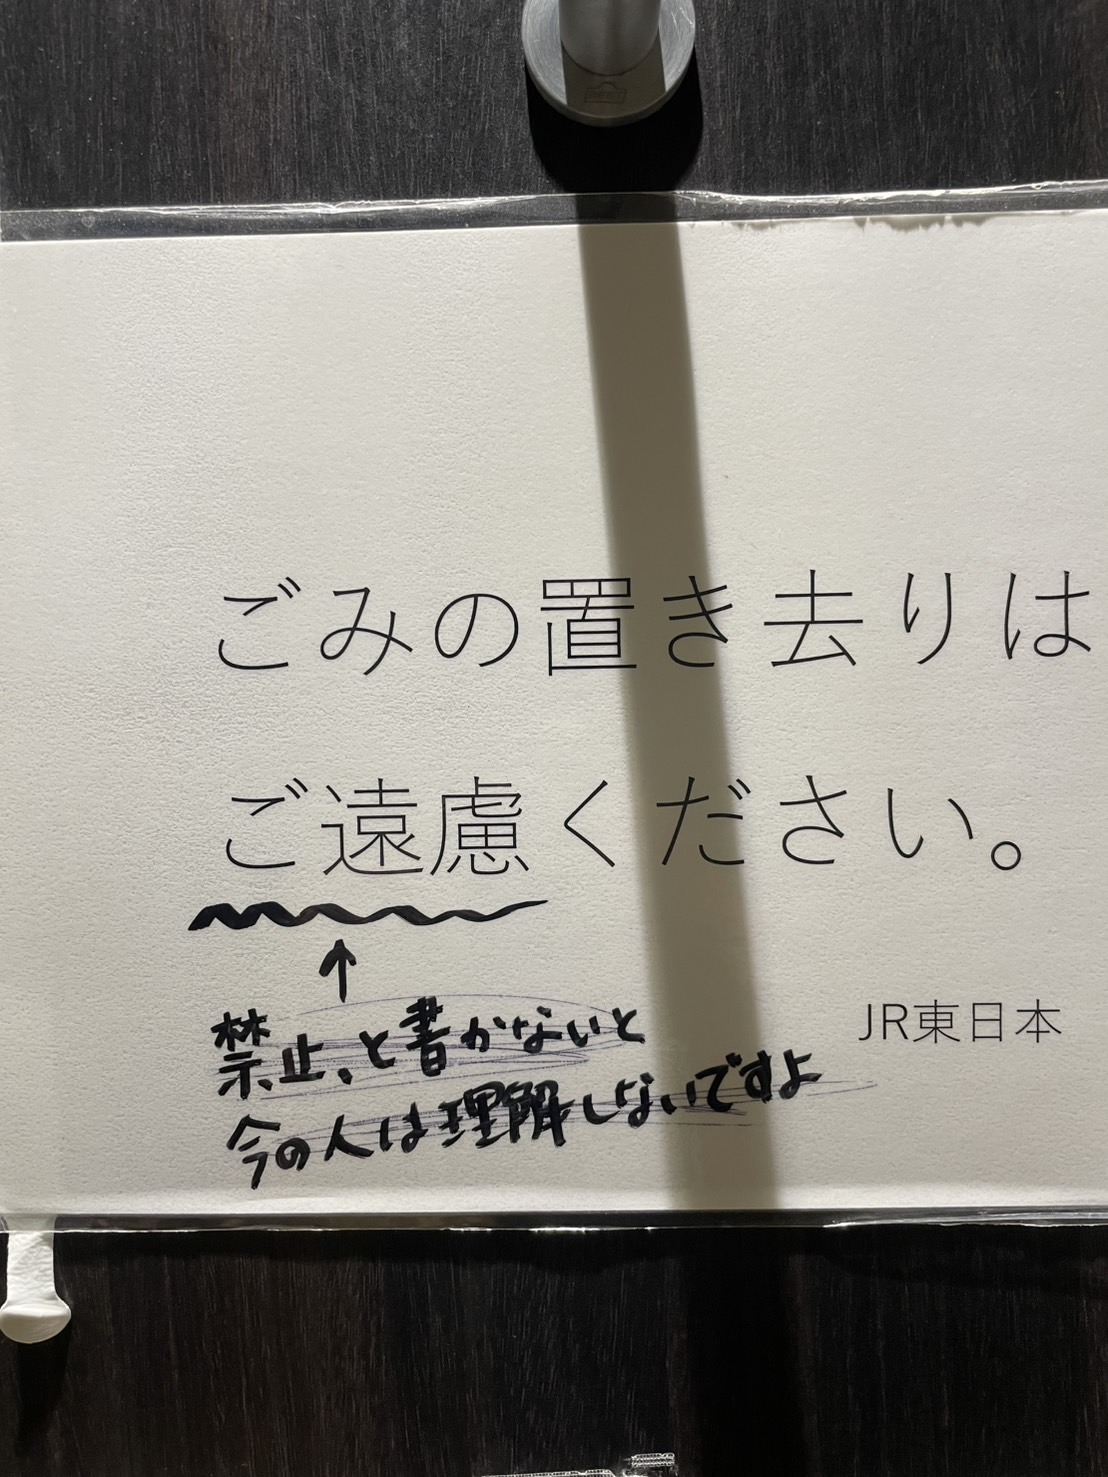 ごみの置き去りは
ご遠慮ください。
JR東日本
↑
禁止、と書かないと
今の人は理解しないですよ